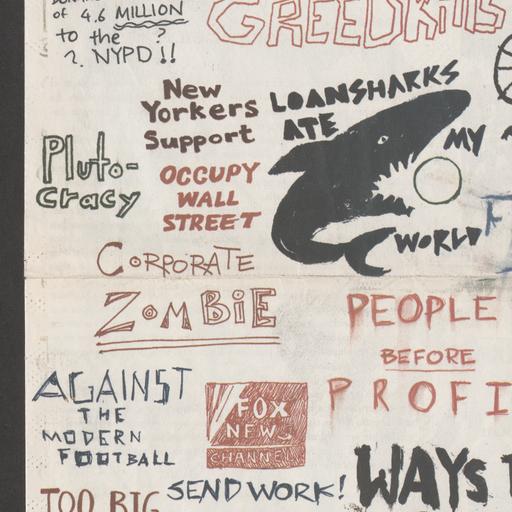 of 4.6 MILLION
to the ?
?. NYPD !!
GREED KILLS
New
Yorkers
Support
OCCUPY
WALL
STREET
LOANSHARKS
ATE
MY
WORLD
Pluto-
cracy
CORPORATE
ZOMBIE
PEOPLE
BEFORE
PROFI
AGAINST
THE
MODERN
FOOTBALL
FOX
NEWS
CHANNEL
SEND WORK!
WAYS
TOO BIG